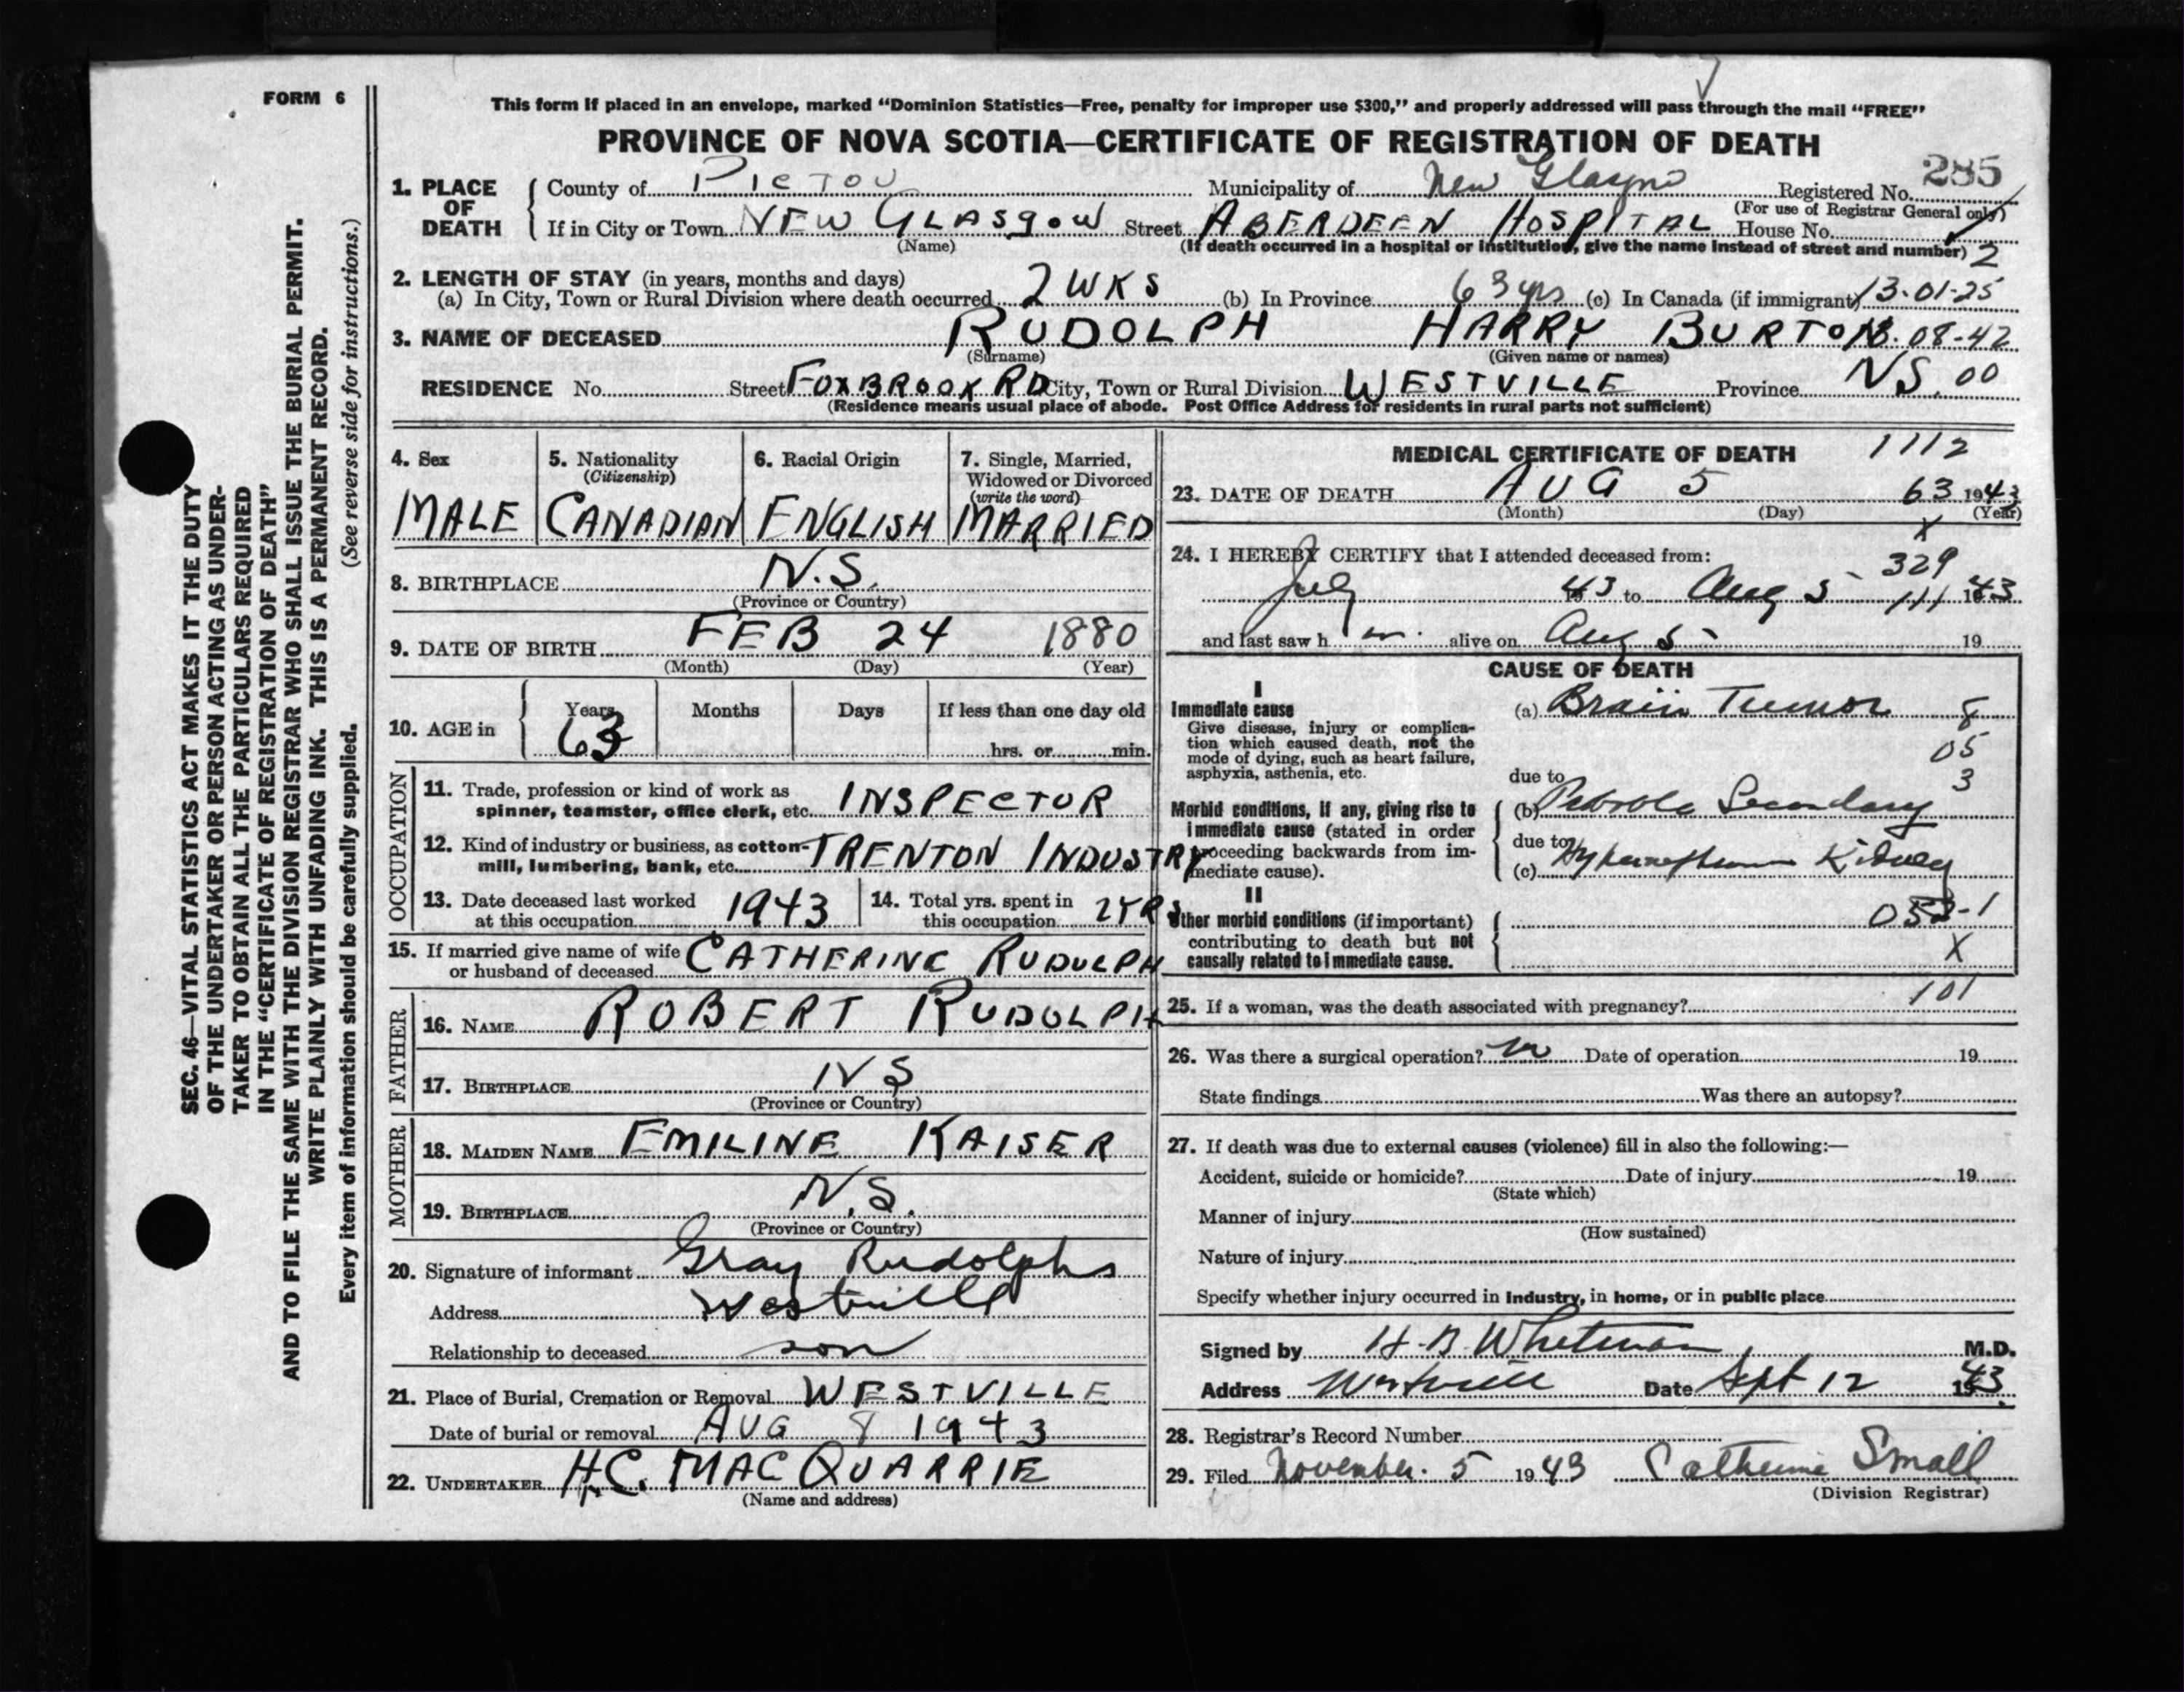 FORM 6
This form if placed in an envelope, marked "Dominion Statistics—Free, penalty for improper use $300," and properly addressed will pass through the mail "FREE"
PROVINCE OF NOVA SCOTIA—CERTIFICATE OF REGISTRATION OF DEATH
285
1. PLACE OF DEATH
County of PICTOU Municipality of New Glasgow Registered No.
(For use of Registrar General only)
If in City or Town NEW GLASGOW Street ABERDEEN HOSPITAL House No.
(Name) (If death occurred in a hospital or institution, give the name instead of street and number) 2
2. LENGTH OF STAY (in years, months and days)
(a) In City, Town or Rural Division where death occurred 2 WKS (b) In Province 63 yrs (c) In Canada (if immigrant) 13-01-25
3. NAME OF DECEASED RUDOLPH HARRY BURTON 13.08-42
(Surname) (Given name or names)
RESIDENCE No. Street FOXBROOK RD City, Town or Rural Division WESTVILLE Province N.S. 00
(Residence means usual place of abode. Post Office Address for residents in rural parts not sufficient)
4. Sex
MALE
5. Nationality
(Citizenship)
CANADIAN
6. Racial Origin
ENGLISH
7. Single, Married,
Widowed or Divorced
(write the word)
MARRIED
8. BIRTHPLACE N.S.
(Province or Country)
9. DATE OF BIRTH FEB 24 1880
(Month) (Day) (Year)
10. AGE in
Years Months Days If less than one day old
63 hrs. or min.
OCCUPATION
11. Trade, profession or kind of work as
spinner, teamster, office clerk, etc. INSPECTOR
12. Kind of industry or business, as cotton-
mill, lumbering, bank, etc. TRENTON INDUSTRY
13. Date deceased last worked
at this occupation 1943
14. Total yrs. spent in
this occupation 2 YRS
15. If married give name of wife
or husband of deceased CATHERINE RUDOLPH
FATHER
16. NAME ROBERT RUDOLPH
17. BIRTHPLACE NS
(Province or Country)
MOTHER
18. MAIDEN NAME EMILINE KAISER
19. BIRTHPLACE N.S.
(Province or Country)
20. Signature of informant Gray Rudolph
Address Westville
Relationship to deceased son
21. Place of Burial, Cremation or Removal WESTVILLE
Date of burial or removal AUG 8 1943
22. UNDERTAKER H.C. MACQUARRIE
(Name and address)
MEDICAL CERTIFICATE OF DEATH 1112
23. DATE OF DEATH AUG 5 63 1943
(Month) (Day) (Year)
X
24. I HEREBY CERTIFY that I attended deceased from:
329
July 43 to Aug 5 111 1943
and last saw h im alive on Aug 5 19
CAUSE OF DEATH
I
Immediate cause
Give disease, injury or complica-
tion which caused death, not the
mode of dying, such as heart failure,
asphyxia, asthenia, etc.
(a) Brain Tumor 8
05
due to 3
Morbid conditions, if any, giving rise to
immediate cause (stated in order
proceeding backwards from im-
mediate cause).
(b) Secondary
due to
(c) Hypernephroma Kidney
II
Other morbid conditions (if important)
contributing to death but not
causally related to immediate cause.
-1
X
25. If a woman, was the death associated with pregnancy? 101
26. Was there a surgical operation? no Date of operation 19
State findings Was there an autopsy?
27. If death was due to external causes (violence) fill in also the following:—
Accident, suicide or homicide? Date of injury 19
(State which)
Manner of injury
(How sustained)
Nature of injury
Specify whether injury occurred in industry, in home, or in public place
Signed by H. B. Whitman M.D.
Address Westville Date Sept 12 1943
28. Registrar's Record Number
29. Filed November 5 1943 Catherine Small
(Division Registrar)
SEC. 46—VITAL STATISTICS ACT MAKES IT THE DUTY
OF THE UNDERTAKER OR PERSON ACTING AS UNDER-
TAKER TO OBTAIN ALL THE PARTICULARS REQUIRED
IN THE "CERTIFICATE OF REGISTRATION OF DEATH"
AND TO FILE THE SAME WITH THE DIVISION REGISTRAR WHO SHALL ISSUE THE BURIAL PERMIT.
WRITE PLAINLY WITH UNFADING INK. THIS IS A PERMANENT RECORD.
Every item of information should be carefully supplied. (See reverse side for instructions.)